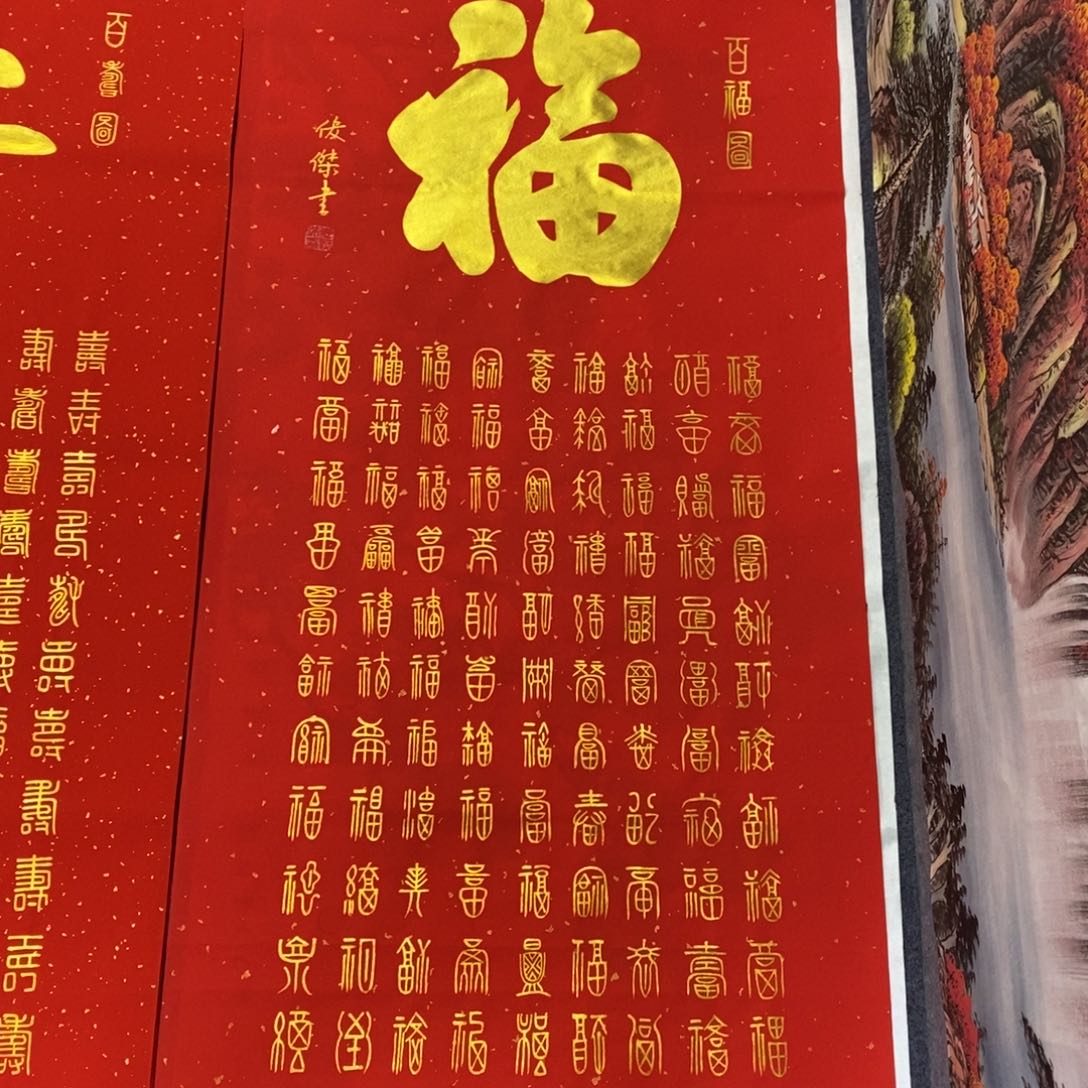 百福圖
福
俊傑書
福福福福福福福福福福福
福福福福福福福福福福福
福福福福福福福福福福福
福福福福福福福福福福福
福福福福福福福福福福福
福福福福福福福福福福福
福福福福福福福福福福福
福福福福福福福福福福福
福福福福福福福福福福福
百壽圖
壽壽壽壽壽壽壽壽壽壽壽
壽壽壽壽